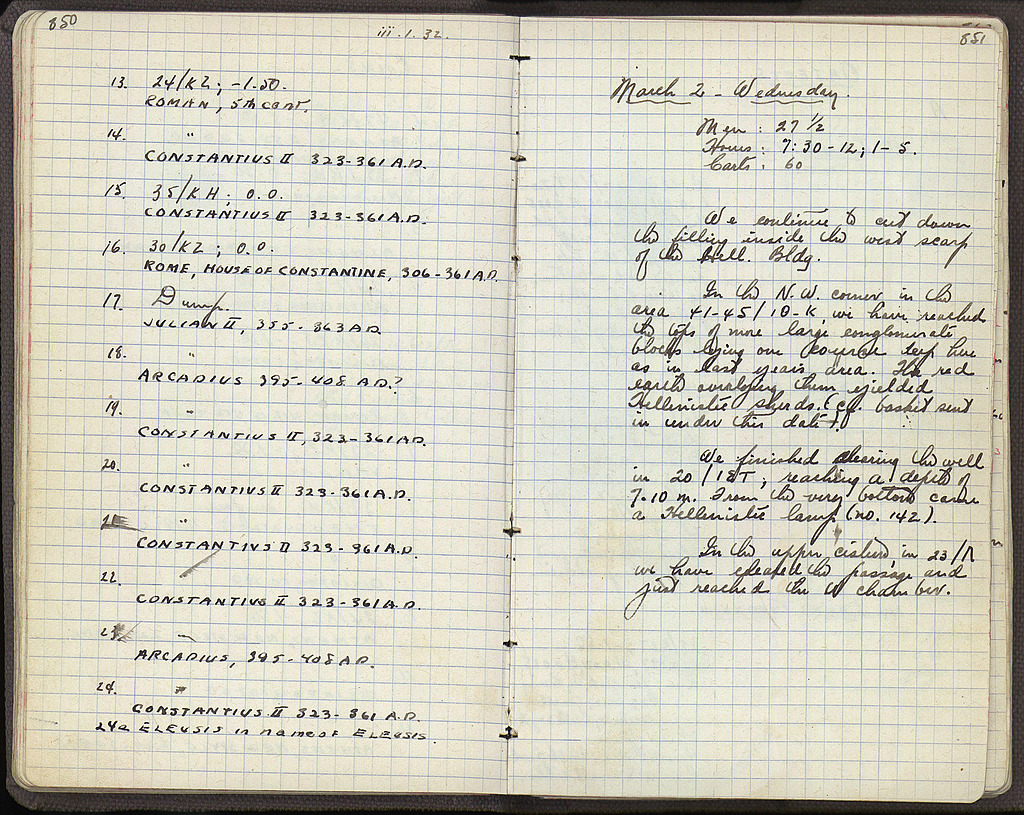 850
iii.1.32.
13. 24/ΚΖ; -1.50.
ROMAN, 5th cent.
14. "
CONSTANTIUS II 323-361 A.D.
15. 35/ΚΗ; 0.0.
CONSTANTIUS II 323-361 A.D.
16. 30/ΚΖ; 0.0.
ROME, HOUSE OF CONSTANTINE, 306-361 A.D.
17. Dump.
JULIAN II, 355-363 A.D.
18. "
ARCADIUS 395-408 A.D.?
19. "
CONSTANTIUS II, 323-361 A.D.
20. "
CONSTANTIUS II 323-361 A.D.
21 "
CONSTANTIUS II 323-361 A.D.
22. "
CONSTANTIUS II 323-361 A.D.
23 "
ARCADIUS, 395-408 A.D.
24. "
CONSTANTIUS II 323-361 A.D.
24a ELEUSIS in name of ELEUSIS
851
March 2 - Wednesday.
Men : 27 1/2
Hours : 7:30-12; 1-5.
Carts : 60
We continue to cut down
the filling inside the west scarp
of the Hell. Bldg.
In the N.W. corner in the
area 41-45/10-K, we have reached
the tops of more large conglomerate
blocks lying one course deep here
as in last years area. The red
earth overlying them yielded
Hellenistic sherds. (cf. basket sent
in under this date).
We finished clearing the well
in 20/ΙΣΤ, reaching a depth of
7.10 m. From the very bottom came
a Hellenistic lamp (no. 142).
In the upper cistern in 23/Λ
we have cleared the passage and
just reached the W chamber.